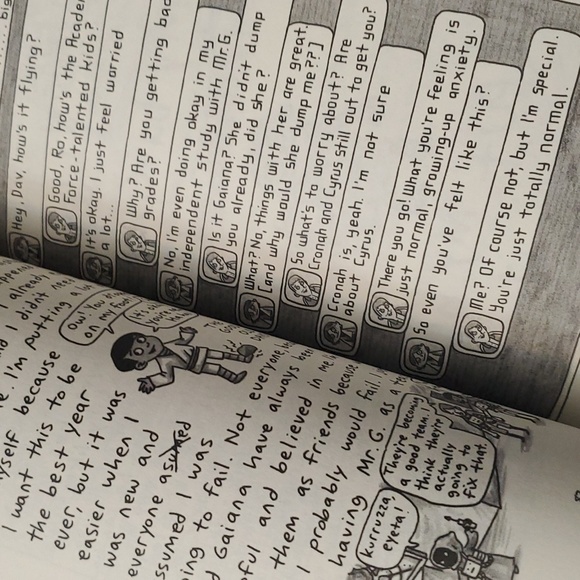 already
I didn't
I'm putting a
because
I want this to be
the best year
ever, but it was
easier when I
was new and
everyone
I was
to fail. Not everyone,
Gaiana have always
and believed in me
them as friends because
I probably would fail.
having Mr. G. as a
Ow!
on my foot!
They're becoming
a good team. I
think they're
actually
going to
fix that
Kurruzza
eyeta!
Hey, Dav, how's it flying?
Good, Ro, how's the
Force-talented kids?
It's okay. I just feel worried
a lot...
Why? Are you getting bad
grades?
No, I'm even doing okay in my
independent study with Mr.G.
Is it Gaiana? She didn't dump
you already, did she?
What? No, things with her are great.
[and why would she dump me??]
So what's to worry about? Are
Cronah and Cyrus still out to get you?
Cronah is, yeah. I'm not sure
about Cyrus.
There you go! What you're feeling is
just normal, growing-up anxiety.
So even you've felt like this?
Me? Of course not, but I'm special.
You're just totally normal.